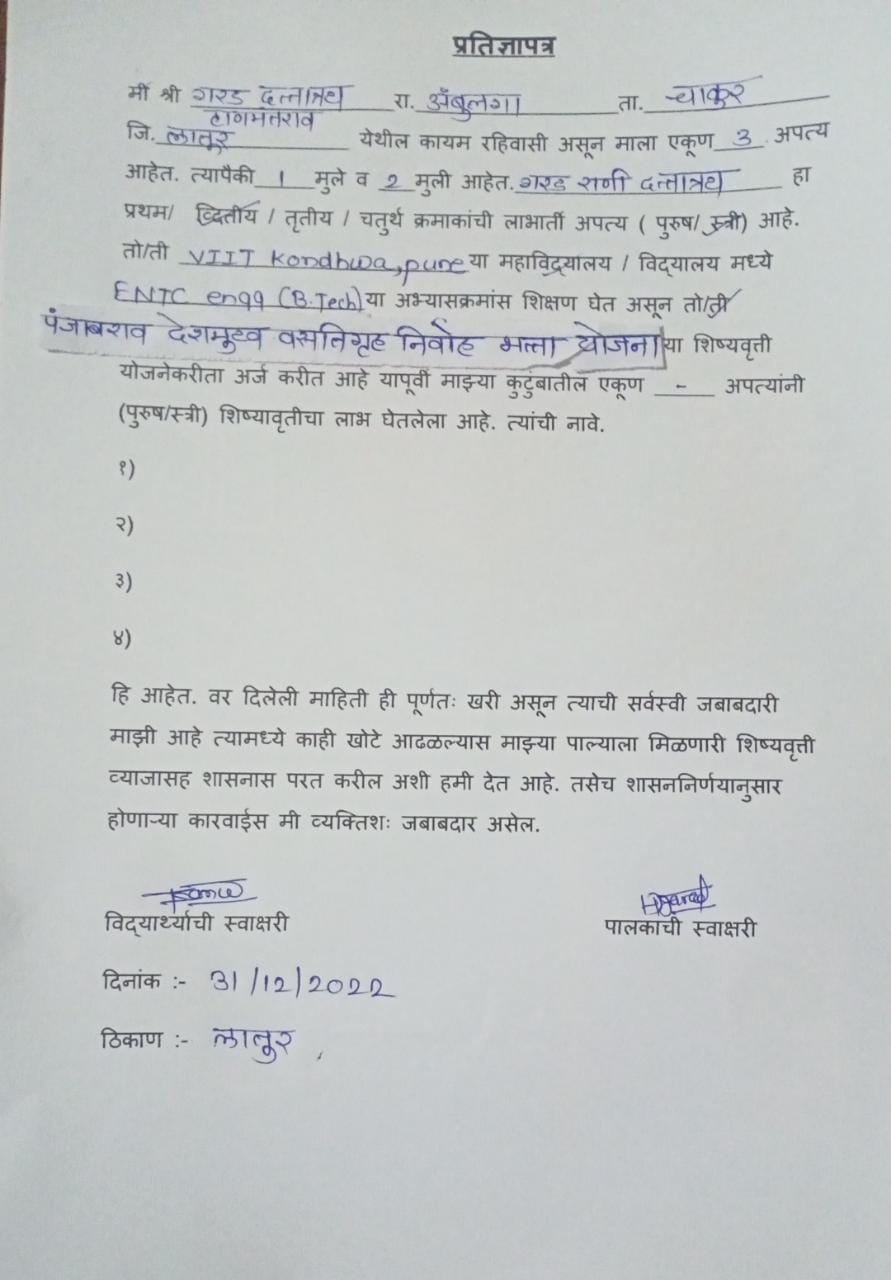 प्रतिज्ञापत्र
मी श्री गरड दत्तात्रय हाणमंतराव रा. अंबुलगा ता. चाकुर
जि. लातूर येथील कायम रहिवासी असून माला एकूण 3 अपत्य
आहेत. त्यापैकी 1 मुले व 2 मुली आहेत. गरड राणी दत्तात्रय हा
प्रथम/ द्वितीय / तृतीय / चतुर्थ क्रमाकांची लाभार्ती अपत्य ( पुरुष/ स्त्री) आहे.
तो/ती VIIT Kondhwa, pune या महाविद्यालय / विद्यालय मध्ये
ENTC engg (B.Tech) या अभ्यासक्रमांस शिक्षण घेत असून तो/ती
पंजाबराव देशमुख वसतिगृह निर्वाह भत्ता योजना या शिष्यवृत्ती
योजनेकरीता अर्ज करीत आहे यापूर्वी माझ्या कुटुंबातील एकूण - अपत्यांनी
(पुरुष/स्त्री) शिष्यावृतीचा लाभ घेतलेला आहे. त्यांची नावे.
१)
२)
३)
४)
हि आहेत. वर दिलेली माहिती ही पूर्णतः खरी असून त्याची सर्वस्वी जबाबदारी
माझी आहे त्यामध्ये काही खोटे आढळल्यास माझ्या पाल्याला मिळणारी शिष्यवृत्ती
व्याजासह शासनास परत करील अशी हमी देत आहे. तसेच शासननिर्णयानुसार
होणाऱ्या कारवाईस मी व्यक्तिशः जबाबदार असेल.
विद्यार्थ्याची स्वाक्षरी पालकाची स्वाक्षरी
दिनांक :- 31/12/2022
ठिकाण :- लातूर